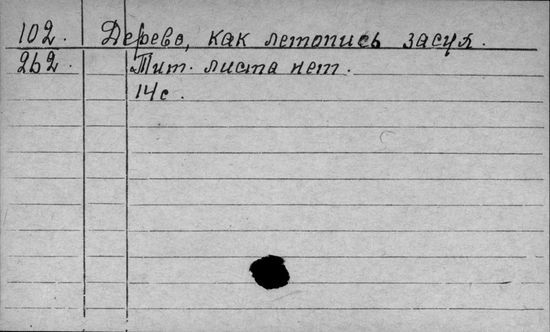 102. Дерево, как летопись засух.
262. Тит. листа нет.
14с.